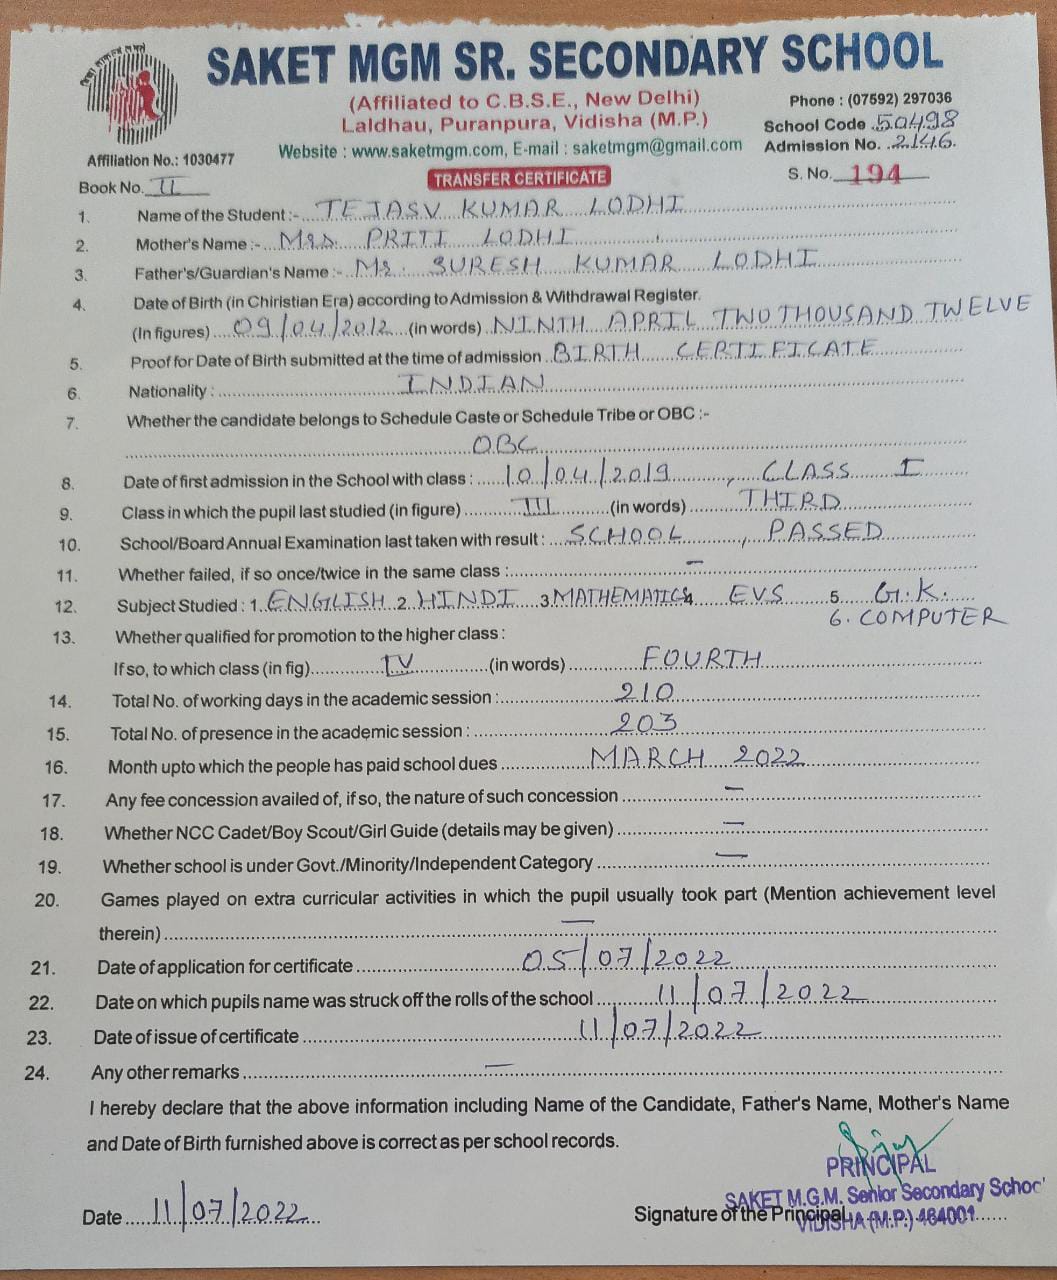 SAKET MGM SR. SECONDARY SCHOOL
(Affiliated to C.B.S.E., New Delhi)
Phone : (07592) 297036
Laldhau, Puranpura, Vidisha (M.P.)
School Code 50498
Website : www.saketmgm.com, E-mail : saketmgm@gmail.com
Admission No. 2146.
Affiliation No.: 1030477
Book No. II
TRANSFER CERTIFICATE
S. No. 194
1. Name of the Student :- TEJASV KUMAR LODHI
2. Mother's Name :- Mrs. PRITI LODHI
3. Father's/Guardian's Name :- Mr. SURESH KUMAR LODHI
4. Date of Birth (in Chiristian Era) according to Admission & Withdrawal Register.
(In figures) 09/04/2012 (in words) NINTH APRIL TWO THOUSAND TWELVE
5. Proof for Date of Birth submitted at the time of admission BIRTH CERTIFICATE
6. Nationality : INDIAN
7. Whether the candidate belongs to Schedule Caste or Schedule Tribe or OBC :-
OBC
8. Date of first admission in the School with class : 10/04/2019, CLASS I
9. Class in which the pupil last studied (in figure) III (in words) THIRD
10. School/Board Annual Examination last taken with result : SCHOOL, PASSED
11. Whether failed, if so once/twice in the same class : –
12. Subject Studied : 1. ENGLISH 2. HINDI 3. MATHEMATICS 4. EVS 5. G.K.
6. COMPUTER
13. Whether qualified for promotion to the higher class :
If so, to which class (in fig) IV (in words) FOURTH
14. Total No. of working days in the academic session : 210
15. Total No. of presence in the academic session : 203
16. Month upto which the people has paid school dues MARCH 2022
17. Any fee concession availed of, if so, the nature of such concession –
18. Whether NCC Cadet/Boy Scout/Girl Guide (details may be given) –
19. Whether school is under Govt./Minority/Independent Category –
20. Games played on extra curricular activities in which the pupil usually took part (Mention achievement level
therein) –
21. Date of application for certificate 05/07/2022
22. Date on which pupils name was struck off the rolls of the school 11/07/2022
23. Date of issue of certificate 11/07/2022
24. Any other remarks –
I hereby declare that the above information including Name of the Candidate, Father's Name, Mother's Name
and Date of Birth furnished above is correct as per school records.
PRINCIPAL
SAKET M.G.M. Senior Secondary School
Date 11/07/2022
Signature of the Principal
VIDISHA (M.P.) 464001